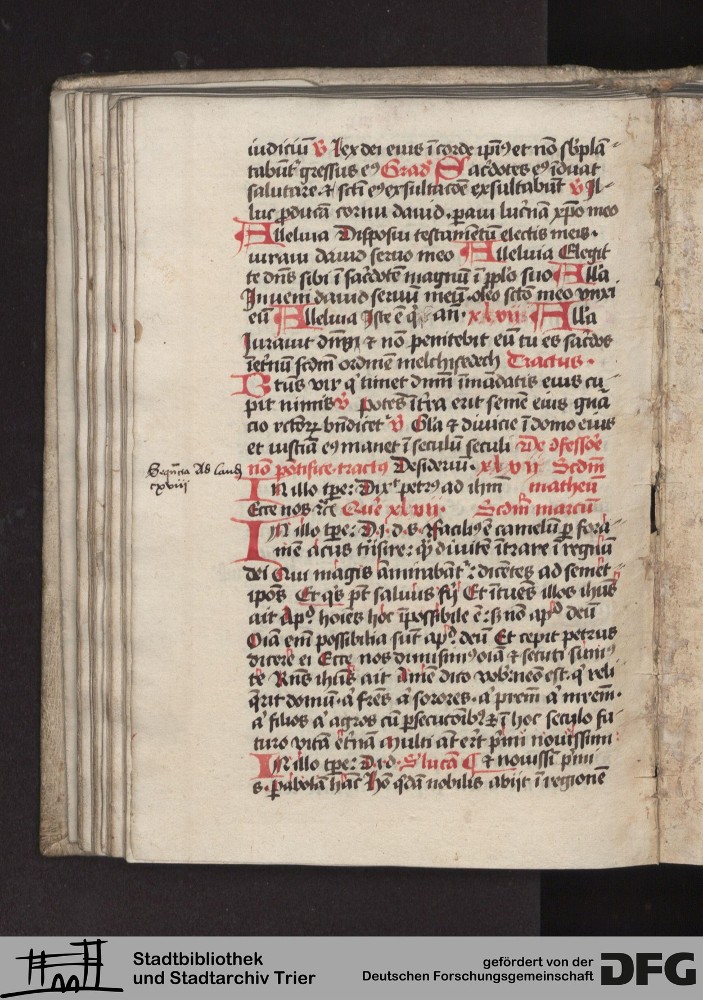 iudiciū v lex dei eius ī corde ipīus et nō s̄bplā-
tabūt gressus eꝰ Grad Sacdotes eꝰ īduat
salutare ⁊ scti eꝰ exsultacōe exsultabūt v Il-
luc ꝓducā cornu dauid ꝑaui lucnā xp̄o meo
Alleluia Disposui testamētū electis meis
iuraui dauid seruo meo Alleluia Elegit
te dn̄s sibi ī sacdotē magnū ī pplo suo Alla
Inueni dauid seruū meū oleo scto meo vnxi
eū Alleluia Iste ē an xlvii Alla
Iurauit dn̄s ⁊ nō penitebit eū tu es sacdos
īetnū scdm ordinē melchisedech Tractus
Btus vir q timet dnm ī mādatis eius cu-
pit nimis v potēs ī tra erit semē eius gnā
cio rctorꝝ bn̄dicet v Gla ⁊ diuicie ī domo eius
et iustia eꝰ manet ī seculū seculi De ꝯfessoē
nō pontifice tractꝰ Desideriū xlvij Scdm
In illo tꝑe Dix petrꝰ ad ihm matheū
Ecce nos rc Quē xlvii Scdm marcū
In illo tꝑe D i d s faciliꝰ ē camelū ꝑ fora-
mē acus trāsire qȝ diuitē ītrare ī regnū
dei Qui magis āmirabāt dicētes ad semet
ipos Et qs pt saluus fij Et ītuēs illos ihus
ait Ap hoīes hoc īpossibile ē sȝ nō ap deū
Oīa em possibilia sūt ap deū Et cepit petrus
dicere ei Ecce nos dimisimꝰ oīa ⁊ secuti sumꝰ
te Rn̄s ihus ait Amē dico vob nēo est q reli
qrit domū a fres a sorores a prem a mrem
a filios a agros cū ꝑsecucōibꝰ ⁊ ī hoc seculo fu-
turo vitā etnā Multi at ert pmi nouissimi
In illo tꝑe D i d S lucā C ⁊ nouissi pmi
s ꝑabolā hāc Hō qdā nobilis abijt ī regionē
Sequēcia Ad laud
cxviij
Stadtbibliothek
und Stadtarchiv Trier
gefördert von der
Deutschen Forschungsgemeinschaft
DFG